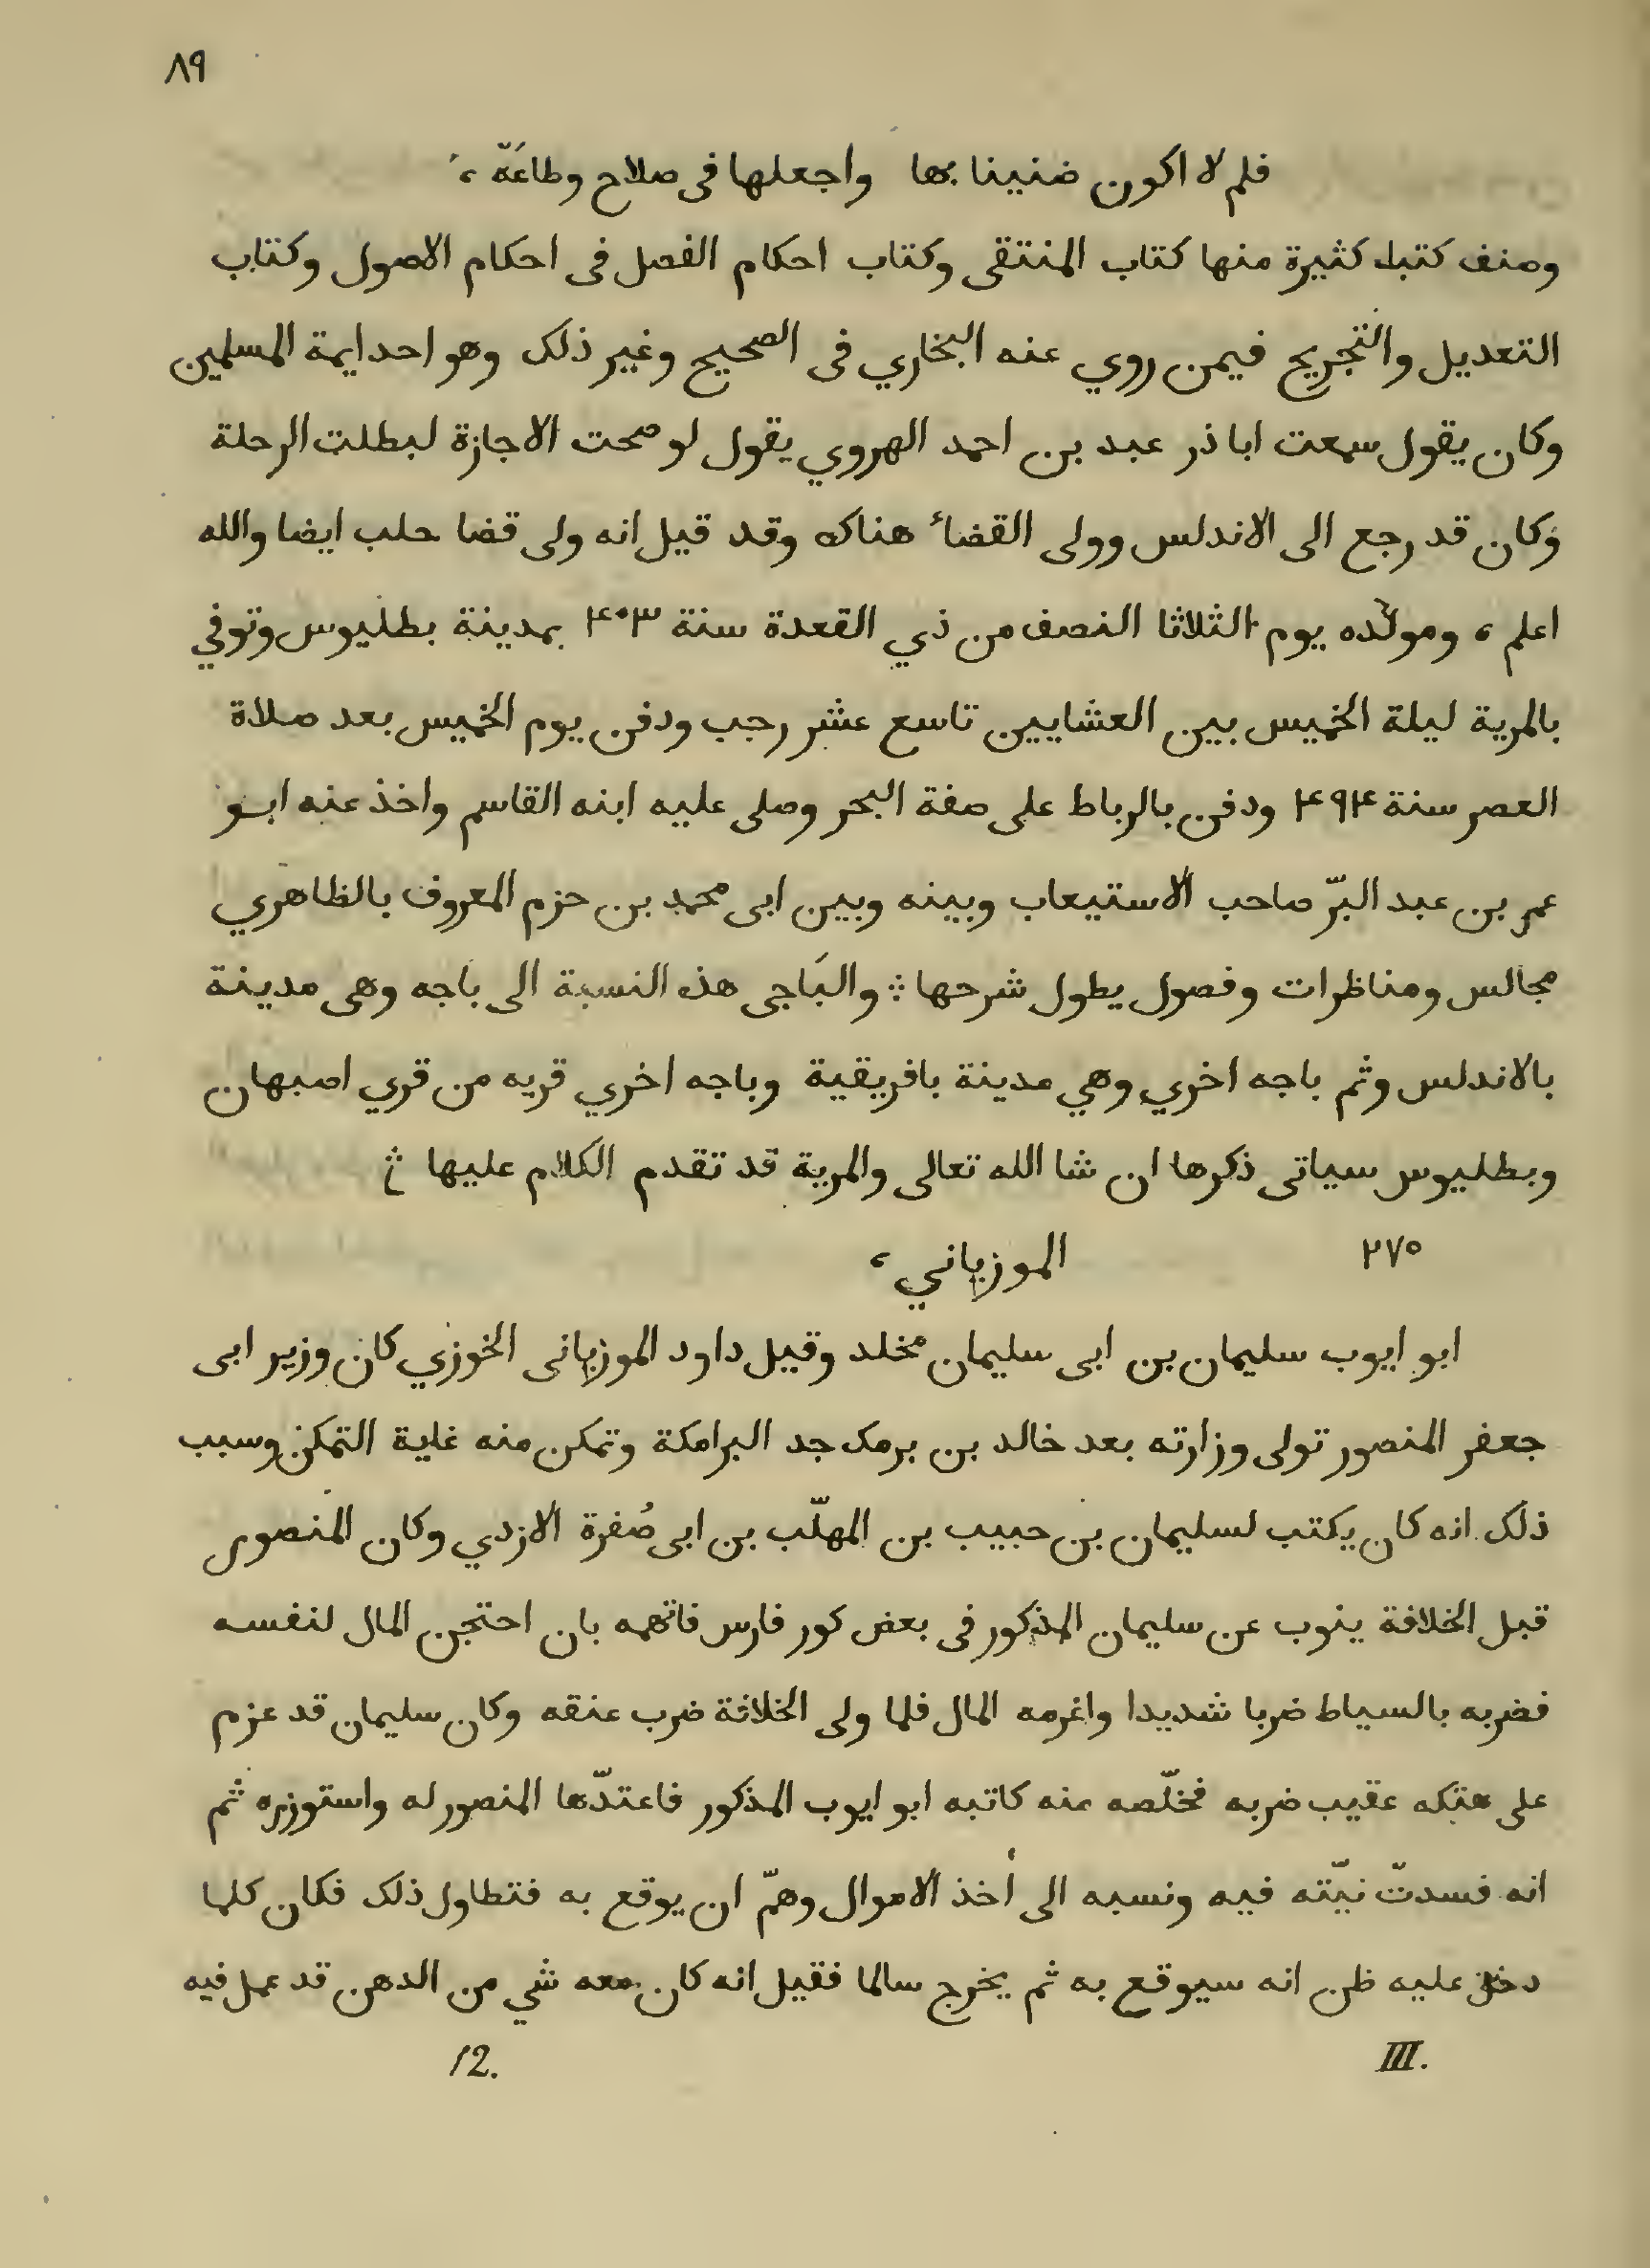 ٨٩
فلم لا اكون ضنينا بها واجعلها فى صلاح وطاعَهّ ،
وصنف كتبا كثيرة منها كتاب المنتقى وكتاب احكام الفصل فى احكام الاصول وكتاب
التعديل والتجريح فيمن روي عنه البخاري فى الصحيح وغير ذلك وهو احد ايمة المسلمين
وكان يقول سمعت ابا ذر عبد بن احمد الهروي يقول لو صحت الاجازة لبطلت الرحلة
وكان قد رجع الى الاندلس وولى القضاء هناك وقد قيل انه ولى قضا حلب ايضا والله
اعلم ، ومولده يوم الثلاثا النصف من ذي القعدة سنة ۴۰۳ بمدينة بطليوس وتوفي
بالمرية ليلة الخميس بين العشايين تاسع عشر رجب ودفن يوم الخميس بعد صلاة
العصر سنة ۴۹۴ ودفن بالرباط على صفة البحر وصلى عليه ابنه القاسم واخذ عنه ابو
عمر بن عبد البرّ صاحب الاستيعاب وبينه وبين ابى محمد بن حزم المعروف بالظاهري
مجالس ومناظرات وفصول يطول شرحها ؛ والبَاجى هذه النسبة الى باجه وهى مدينة
بالاندلس وثم باجه اخري وهي مدينة بافريقية وباجه اخري قريه من قري اصبهان
وبطليوس سياتى ذكرها ان شا الله تعالى والمرية قد تقدم الكلام عليها
٢٧٥ الموزياني ،
ابو ايوب سليمان بن ابى سليمان مخلد وقيل داود الموزيانى الخوزي كان وزير ابى
جعفر المنصور تولى وزارته بعد خالد بن برمك جد البرامكة وتمكن منه غاية التمكن وسبب
ذلك انه كان يكتب لسليمان بن حبيب بن المهلّب بن ابى صُفرة الازدي وكان المنصور
قبل الخلافة ينوب عن سليمان المذكور فى بعض كور فارس فاتهمه بان احتجن المال لنفسه
فضربه بالسياط ضربا شديدا واغرمه المال فلما ولى الخلافة ضرب عنقه وكان سليمان قد عزم
على هتكه عقيب ضربه فخلّصه منه كاتبه ابو ايوب المذكور فاعتدّها المنصور له واستوزره ثم
انه فسدتّ نيّته فيه ونسبه الى أخذ الاموال وهمّ ان يوقع به فتطاول ذلك فكان كلما
دخل عليه ظن انه سيوقع به ثم يخرج سالما فقيل انه كان معه شي من الدهن قد عمل فيه
III. 12.